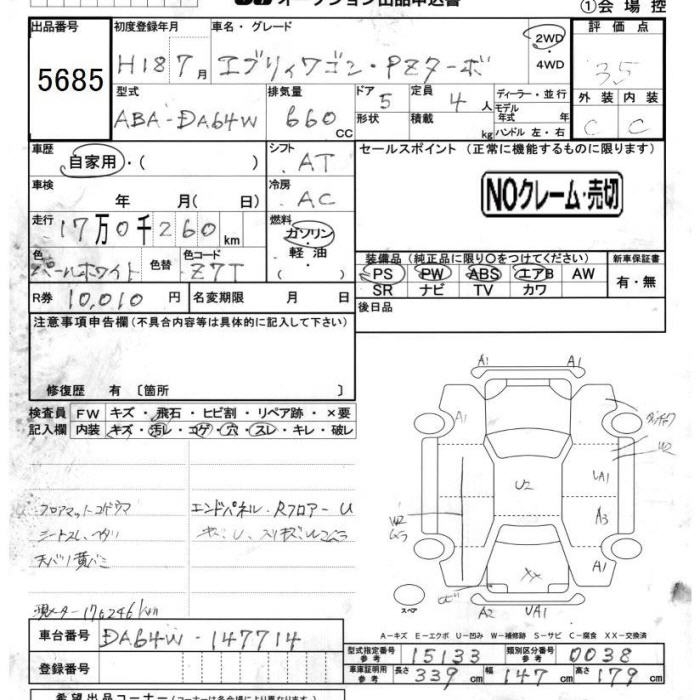 オークション出品申込書
①会場控
出品番号 初度登録年月 車名・グレード 2WD 評価点
5685 H18 7月 エブリィワゴン・PZターボ ・4WD 3.5
型式 排気量 ドア 定員 ディーラー・並行 外装 内装
ABA-DA64W 660 CC 5 4人 モデル年式 年 C C
形状 積載 kg ハンドル 左・右
車歴 シフト セールスポイント (正常に機能するものに限ります)
自家用・( ) AT
車検 冷房 NOクレーム・売切
年 月( 日) AC
走行 燃料
17万0千260km ガソリン・軽油
色 色替 色コード ( ) 装備品(純正品に限り○をつけてください) 新車保証書
パールホワイト Z7T PS PW ABS エアB AW 有・無
SR ナビ TV カワ
R券 10,010円 名変期限 月 日 後日品
注意事項申告欄(不具合内容等は具体的に記入して下さい)
修復歴 有〔箇所 〕
検査員 FW キズ・飛石・ヒビ割・リペア跡・×要
記入欄 内装 キズ・汚レ・コゲ・穴・スレ・キレ・破レ
A1 A1
A1
W2
U2 UA1
A3
W2
XX A1
スペア A2 UA1
フロアマット
エンドパネル・Rフロアー U
シートスレ
天バリ黄バミ
現メーター 170246km
A-キズ E-エクボ U-凹み W-補修跡 S-サビ C-腐食 XX-交換済
車台番号 DA64W-147714
型式指定番号 参考 15133 類別区分番号 参考 0038
登録番号
車庫証明用 参考 長さ 339cm 幅 147cm 高さ 179cm
希望出品コーナー(コーナー名は各会場により異なります)